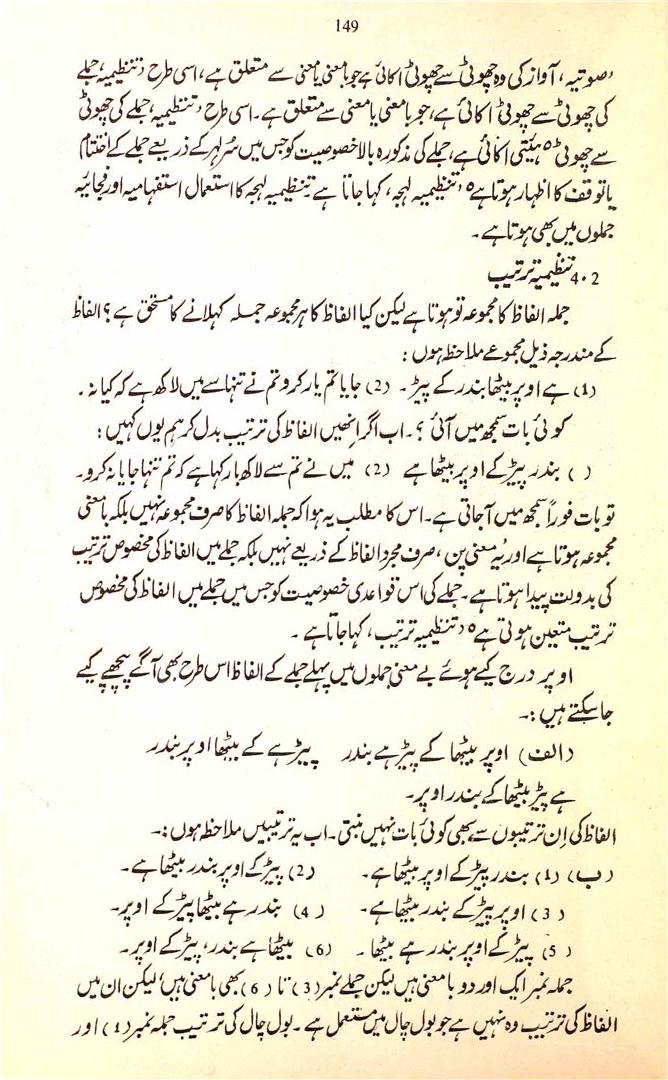 149
’صوتیہ، آواز کی وہ چھوٹی سے چھوٹی اکائی ہے جو بامعنی یا معنی سے متعلق ہے، اسی طرح ’تنظیمیہ، جملے
کی چھوٹی سے چھوٹی اکائی ہے، جو بامعنی یا معنی سے متعلق ہے۔ اسی طرح ’تنظیمیہ، جملے کی چھوٹی
سے چھوٹی ہیئتی اکائی ہے، جملے کی مذکورہ بالا خصوصیت کو جس میں سُر لہر کے ذریعے جملے کے اختتام
یا توقف کا اظہار ہوتا ہے ’تنظیمیہ لہجہ، کہا جاتا ہے۔ تنظیمیہ لہجہ کا استعمال استفہامیہ اور فجائیہ
جملوں میں بھی ہوتا ہے۔
4.2 تنظیمیہ ترتیب
جملہ الفاظ کا مجموعہ تو ہوتا ہے لیکن کیا الفاظ کا ہر مجموعہ جملہ کہلانے کا مستحق ہے؟ الفاظ
کے مندرجہ ذیل مجموعے ملاحظہ ہوں:
(1) ہے اوپر بیٹھا بندر کے پیڑ۔ (2) جایا تم بار کرو تم نے تنہا سے میں لاکھ ہے کہ کہا نہ۔
کوئی بات سمجھ میں آئی؟۔ اب اگر انھیں الفاظ کی ترتیب بدل کر ہم یوں کہیں:
( ) بندر پیڑ کے اوپر بیٹھا ہے (2) میں نے تم سے لاکھ بار کہا ہے کہ تم تنہا جایا نہ کرو۔
تو بات فوراً سمجھ میں آجاتی ہے۔ اس کا مطلب یہ ہوا کہ جملہ الفاظ کا صرف مجموعہ نہیں بلکہ بامعنی
مجموعہ ہوتا ہے اور یہ معنی پن، صرف مجرد الفاظ کے ذریعے نہیں بلکہ جملے میں الفاظ کی مخصوص ترتیب
کی بدولت پیدا ہوتا ہے۔ جملے کی اس قواعدی خصوصیت کو جس میں جملے میں الفاظ کی مخصوص
ترتیب متعین ہوتی ہے ’تنظیمیہ ترتیب، کہا جاتا ہے۔
اوپر درج کیے ہوئے بے معنی جملوں میں پہلے جملے کے الفاظ اس طرح بھی آگے پیچھے کیے
جاسکتے ہیں:۔
(الف) اوپر بیٹھا کے پیڑ ہے بندر پیڑ ہے کے بیٹھا اوپر بندر
ہے پیڑ بیٹھا کے بندر اوپر۔
الفاظ کی اِن ترتیبوں سے بھی کوئی بات نہیں بنتی۔ اب یہ ترتیبیں ملاحظہ ہوں:۔
(ب) (1) بندر پیڑ کے اوپر بیٹھا ہے۔ (2) پیڑ کے اوپر بندر بیٹھا ہے۔
(3) اوپر پیڑ کے بندر بیٹھا ہے۔ (4) بندر ہے بیٹھا پیڑ کے اوپر۔
(5) پیڑ کے اوپر بندر ہے بیٹھا۔ (6) بیٹھا ہے بندر، پیڑ کے اوپر۔
جملہ نمبر ایک اور دو بامعنی ہیں لیکن جملے نمبر (3) تا (6) بھی بامعنی ہیں، لیکن ان میں
الفاظ کی ترتیب وہ نہیں ہے جو بول چال میں مستعمل ہے۔ بول چال کی ترتیب جملہ نمبر (1) اور